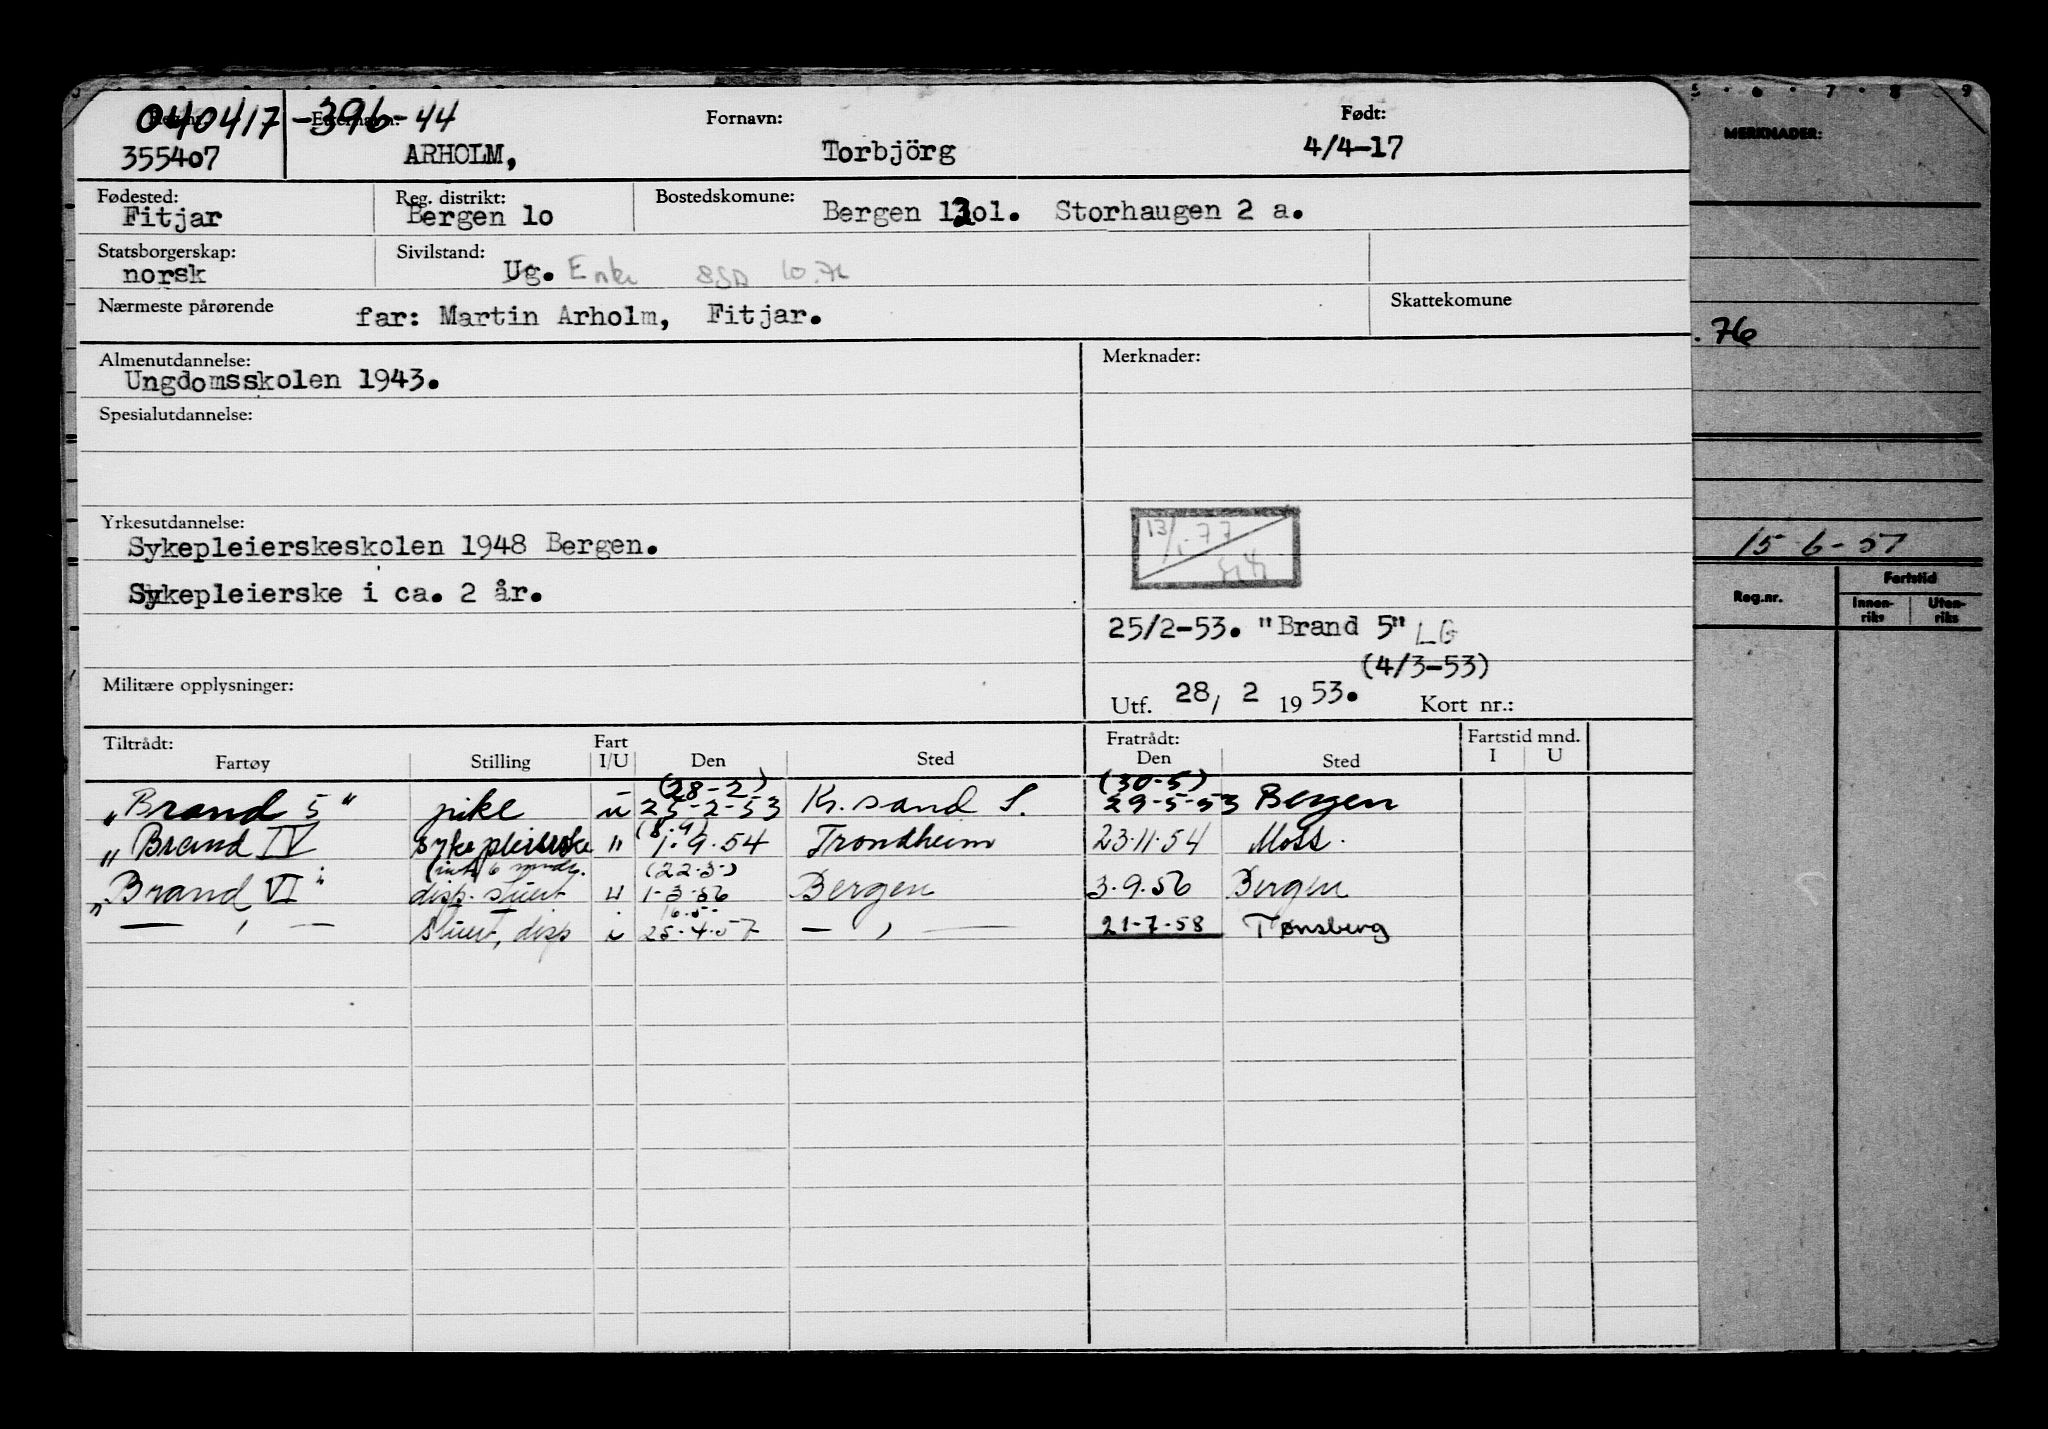 040417-396-44
Reg.nr. Etternavn: Fornavn: Født:
355407 ARHOLM, Torbjörg 4/4-17
Fødested: Reg. distrikt: Bostedskomune:
Fitjar Bergen 1o Bergen 1301. Storhaugen 2 a.
Statsborgerskap: Sivilstand:
norsk Ug. Enke 10.76
Nærmeste pårørende far: Martin Arholm, Fitjar. Skattekomune
Almenutdannelse: Merknader:
Ungdomsskolen 1943.
Spesialutdannelse:
Yrkesutdannelse: 13/1-77
Sykepleierskeskolen 1948 Bergen.
Sykepleierske i ca. 2 år.
25/2-53. "Brand 5" LG
(4/3-53)
Militære opplysninger: Utf. 28/ 2 1953. Kort nr.:
Tiltrådt: Fart Fratrådt: Fartstid mnd.
Fartøy Stilling I/U Den Sted Den Sted I U
(28-2) (30-5)
"Brand 5" pike u 25-2-53 Kr.sand S. 29-5-53 Bergen
(8.9)
"Brand IV sykepleierske " 1.9.54 Trondheim 23.11.54 Moss.
(22.3)
"Brand VI" disp. stuert u 1-3-56 Bergen 3.9.56 Bergen
— " — stuert, disp u 25-4-57 — " — 21-7-58 Tønsberg
5 · 6 · 7 · 8 9
MERKNADER:
. 76
15-6-57
Reg.nr. Fartstid
Innen-riks Uten-riks